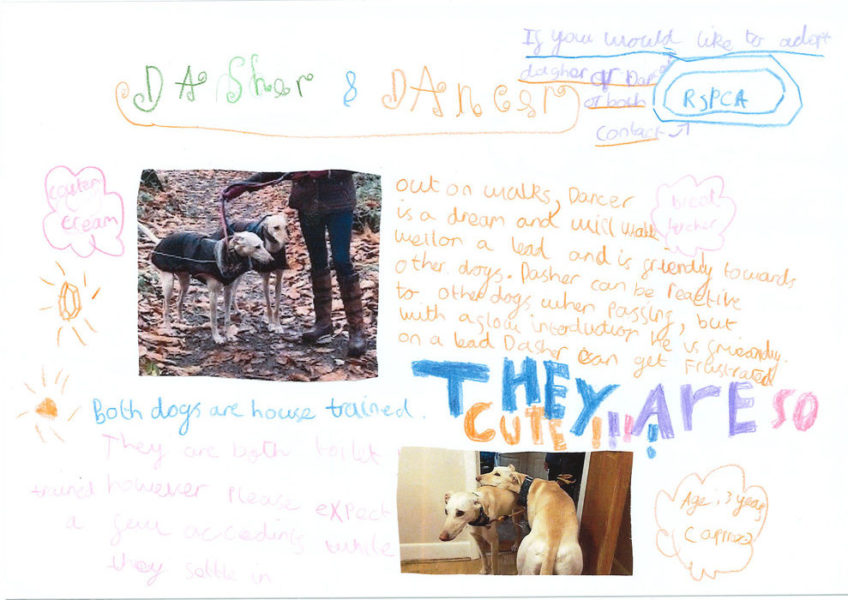 If you would like to adopt
dasher or Dancer
or both
contact
RSPCA
DASher & DANcer
colour
cream
breed
lurcher
out on walks, Dancer
is a dream and will walk
well on a lead and is friendly towards
other dogs. Dasher can be reactive
to other dogs when passing, but
with a slow introduction he is friendly.
on a lead Dasher can get frustrated
THEY ARE SO
CUTE!!!!!
Both dogs are house trained.
They are both toilet
trained however please expect
a few accedints while
they settle in
Age, 3 years